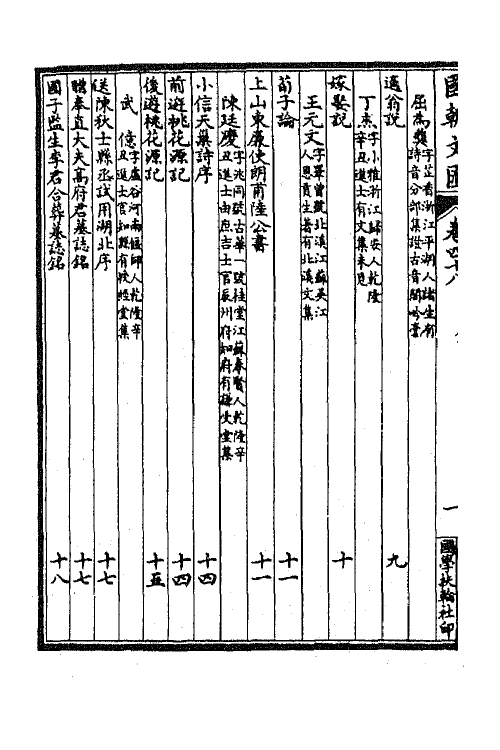 國朝文匯 卷四十八 一 國學扶輪社印
屈爲彝 字芷香浙江平湖人諸生有詩音分部集證古音閣吟堂
遇翁說 九
丁杰 字小雅浙江歸安人乾隆辛丑進士有文集未見
嫁娶說 十
王元文 字睪曾號北溪江蘇吳江人恩貢生著有北溪文集
荀子論 十一
上山東嚴使朗甫陸公書 十一
陳廷慶 字兆同號古華一號桂堂江蘇奉賢人乾隆辛丑進士由庶吉士官辰州府知府有謙受堂集
小信天巢詩序 十四
前遊桃花源記 十四
後遊桃花源記 十五
武億 字虛谷河南偃師人乾隆辛丑進士官知縣有授經堂集
送陳秋士縣丞試用湖北序 十七
贈奉直大夫高府君墓誌銘 十七
國子監生李君合葬墓誌銘 十八